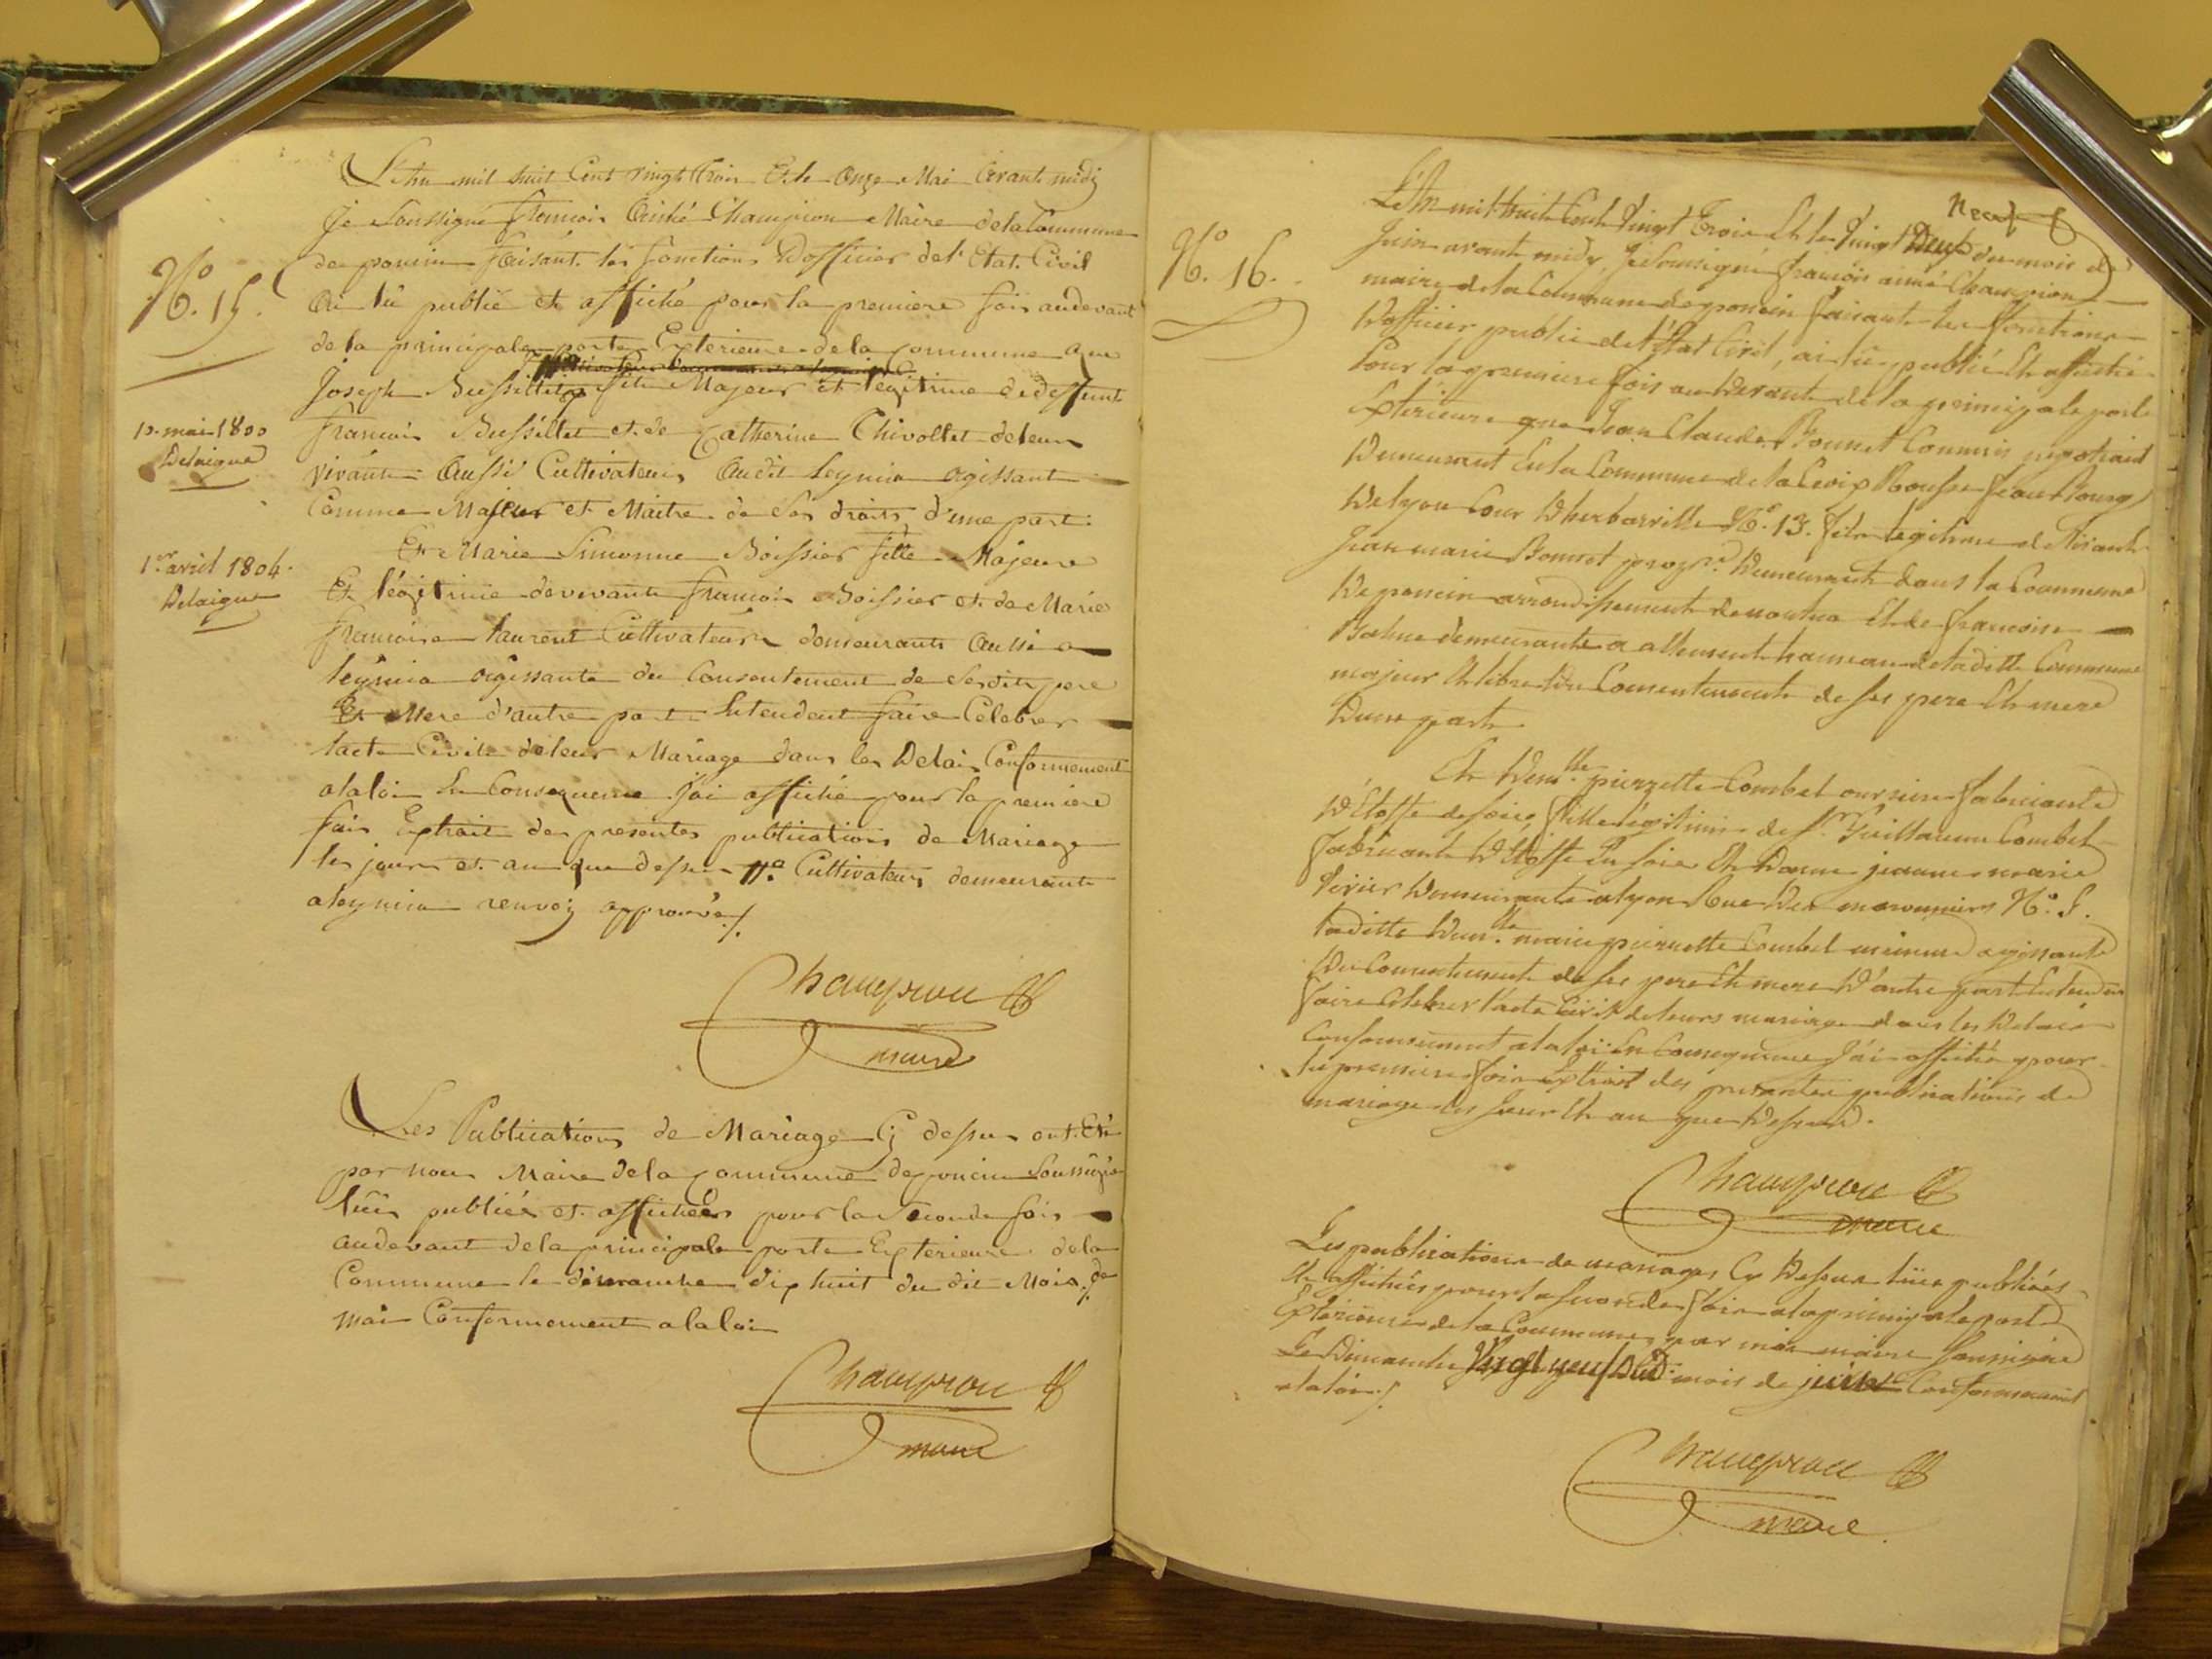 L'an mil huit Cent vingt trois Et le Onze Mai avant midi
Je Soussigné françois Aimé Champion Maire dela Commune
de poncin faisant les fonctions D'officier del'Etat Civil
Ai lû publié et affiché pour la premiere fois audevant
de la principale porte Exterieure de la commune que
Joseph Bussillet fils Majeur et légitime de deffunt
francois Bussillet et de Catherine Chivollet deleur
vivants Aussi Cultivateurs Audit Leymia agissant
Comme Majeur et Maitre de Ses droits d'une part.
Et Marie Simonne Boissier fille Majeure
Et légitime de vivants francois Boissier et de Marie
francoise laurent Cultivateurs demeurants Aussi a
leymia agissante du Consentement de Sesdits pere
Et Mere d'autre part Entendent faire Célébrer
lacte Civil de leur Mariage dans les Delais Conformement
alaloi En Consequence j'ai affiché pour la premiere
fois Extrait des presentes publications de Mariage
les jour et an que dessus //a Cultivateur demeurant
a leymia renvoi approuvé ./.
Champion
maire
Les Publications de Mariage Cy dessus ont Eté
par nous Maire dela Commune de poncin Soussigné
lües publiées et affichées pour la Seconde fois
audevant dela principale porte Exterieure dela
Commune le dimanche dix huit du dit Mois de
mai Conformement alaloi
Champion
maire
No. 15.
10. mai 1800
Delaigue
1er avril 1804.
Delaigue
No. 16.
neuf
L'An mil huit Cent Vingt Trois Et le Vingt deux du mois de
Juin avant midy, Je Soussigné françois aimé Champion
maire de la Commune de poncin faisant les fonctions
D'officier public de l'état Civil, ai lû publié Et affiché
Pour la premiere fois au Devant de la principale porte
Extérieure que Jean Claude Bonnet Commis negotiant
Demeurant En la Commune de la Croix Rousse feaux Bourg
De lyon Cour D'herbouville No. 13. fils légitime de Vivants
Jean marie Bonnet propre. Demeurant dans la Commune
De poncin arrondissement de nantua Et de francoise
demeurante a allement hameau de ladite Commune
majeur Et libre Du Consentement de ses pere Et mere
D'une part.
Et Demlle. pierrette Combet ouvriere fabricante
D'Etoffe de soie, fille légitime de Sr. Guillaume Combet
fabricant D'Etoffe En soie Et Dame jeanne marie
Demeurants a lyon Rue Des maronniers No. 5.
laditte Demlle. marie pierrette Combet mineure agissante
Du Consentement de ses pere Et mere D'autre part Entendent
faire Célébrer l'acte Civil de leurs mariage dans les Delais
Conformement a la loi En Consequence J'ai affiché pour
la premiere fois Extrait des presentes publications de
mariage les Jour Et an que Dessus.
Champion
maire
Les publications de mariages Cy Dessus lües publiées
Et affichées pour la seconde fois a la principale porte
Extérieure de la Commune par moi maire Soussigné
Le Dimanche Vingt neuf Dud. mois de juin Conformement
a la loi ./.
Champion
maire